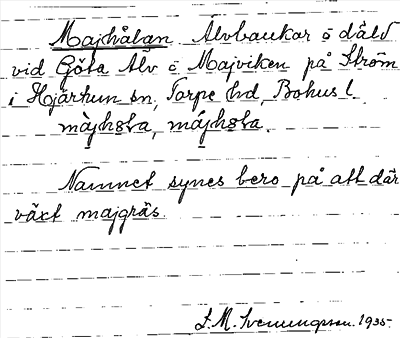 Majhålan Älvbankar o däld
vid Göta Älv i Majviken på Ström
i Hjärtum sn, Torpe hd, Bohus l.
Namnet synes bero på att där
växt majgräs.
S. M. Svenungsson. 1935.